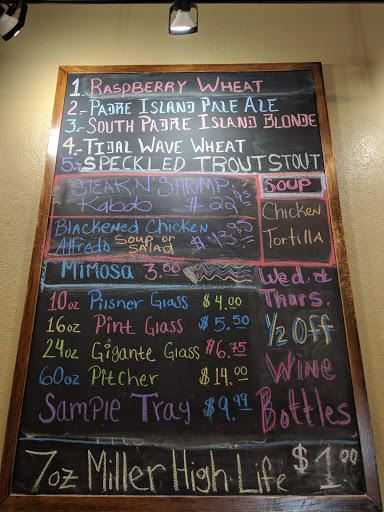 1. Raspberry Wheat
2.- Padre Island Pale Ale
3.- South Padre Island Blonde
4.- Tidal Wave Wheat
5.- Speckled Trout Stout
Steak N' Shrimp
Kabob $22.95
Blackened Chicken
Alfredo Soup or Salad $13.95
Soup
Chicken
Tortilla
Mimosa 3.50
10oz Pilsner Glass $4.00
16oz Pint Glass $5.50
24oz Gigante Glass $6.75
60oz Pitcher $14.00
Sample Tray $9.99
Wed. &
Thurs.
1/2 Off
Wine
Bottles
7oz Miller High Life $1.00